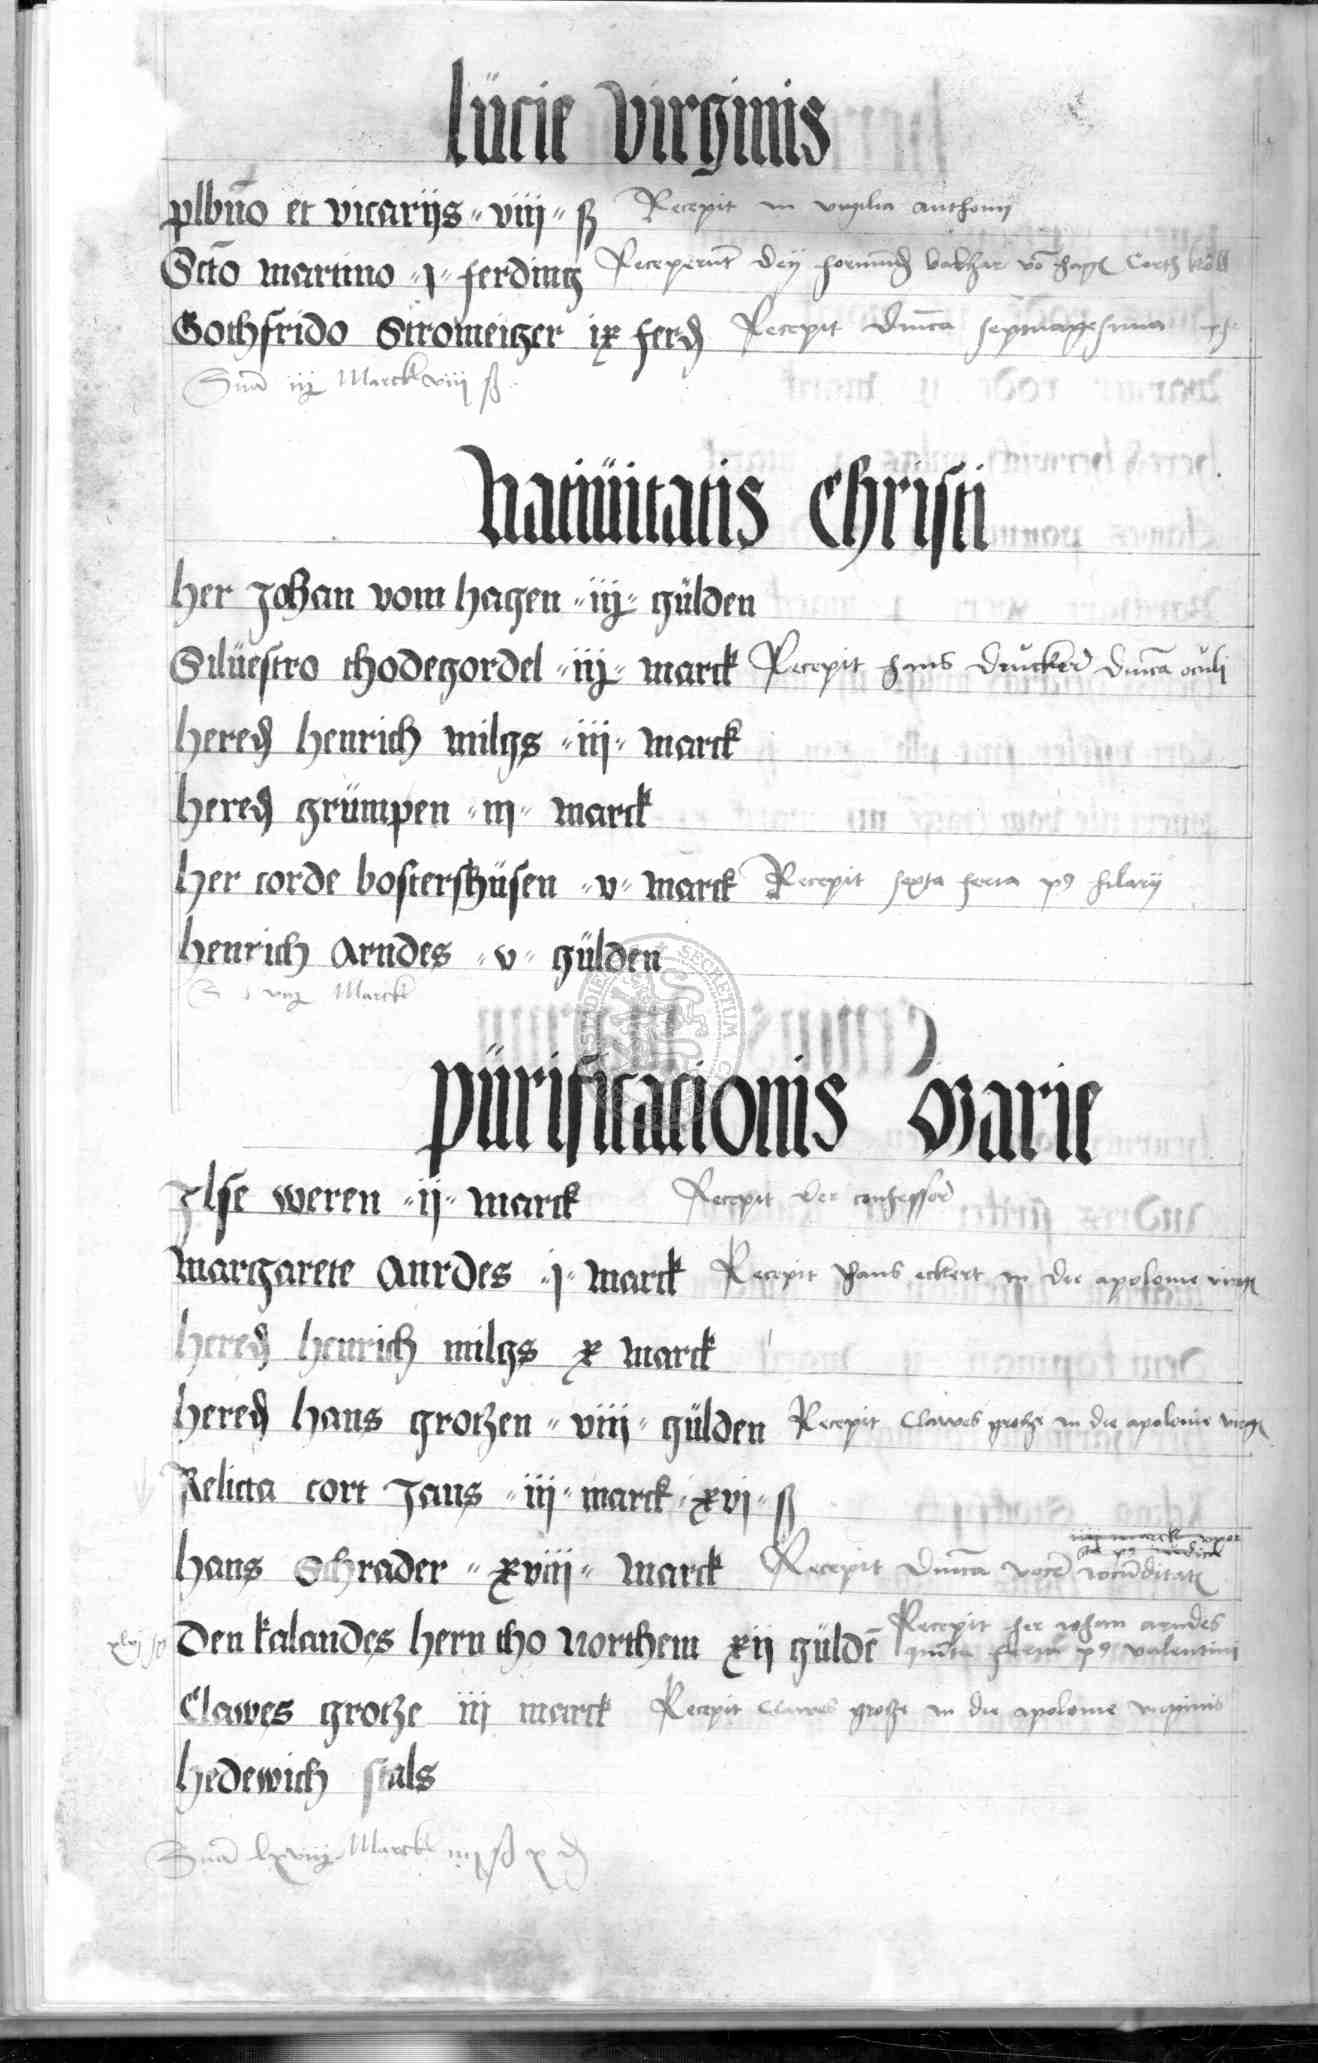 Lücie Virginis
plbno et vicarijs viij ß Recepit in vigilia anthonij
Scto martino j ferding Receperut dey formund vo hage Corth
Gothfrido Stromeiger ix ferd Recepit dnica septuagesima
Sma iij Marck viij ß
Natiüitatis Christi
her Johan vom hagen iij gülden
Silüestro thodegordel iij marck Recepit hans drucker dnica oculi
hered henrich milgs iij marck
hered grümpen iij marck
her corde bosterßhüsen v marck Recepit sexta feria p9 hilarij
henrich Arndes v gülden
Marck
Pürificacionis Marie
Ilse weren ij marck Recepit der confessor
Margarete Anrdes j marck Recepit hans eckert in die apolonie virg
hered henrich milgs x marck
hered hans grotzen viij gülden Recepit Clawes grotze in die apolonie virg
Relicta cort Jans iij marck xvj ß
iiij marck
hans Schrader xviij marck Recepit dnica voce iocunditat
Recepit her Johan arndes
Den kalandes hern tho northem xij gülde quinta feria p9 valentini
Clawes grotze iij marck Recepit Clawes grotze in die apolonie virginis
hedewich stals
Sma lxviij Marck iiij ß x d
SECRETUM